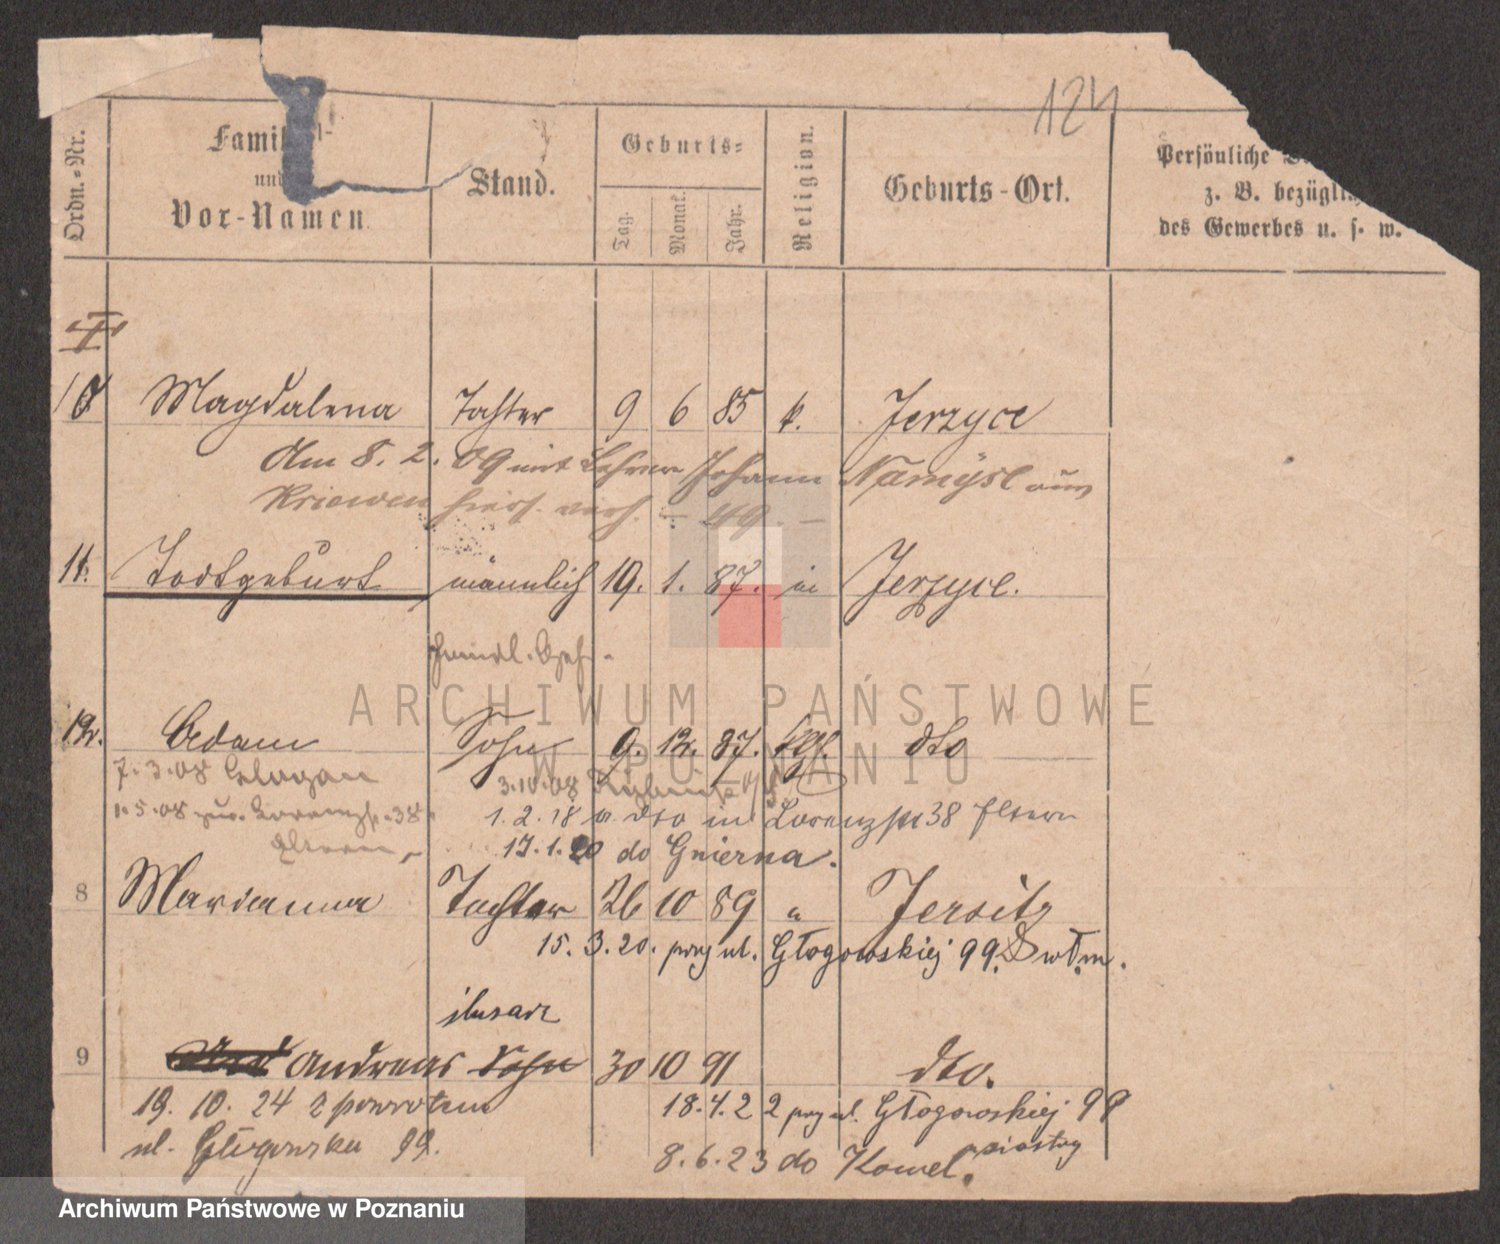 124
Ordn.-Nr.
Famil
und
Vor-Namen.
Stand.
Geburts-
Tag.
Monat.
Jahr.
Religion.
Geburts-Ort.
Persönliche
z. B. bezüglich
des Gewerbes u. s. w.
I
10 Magdalena Tochter 9 6 85 k. Jerzyce
Am 8. 2. 09 mit Lehrer Johann Namysl aus
Kriewen hiers. verh. – 49 –
11. Todtgeburt männlich 19. 1. 87. Jerzyce.
12. Adam Sohn 9. 12. 87. kth. dto
7.3.08 Glogau 3.10.08
1.5.08 zur. Lorenzstr. 38 1.2.18 v. dto in Lorenzstr 38 Eltern
Eltern 17.1.20 do Gniezna.
8 Marianna Tochter 26 10 89 " Jersitz
15.3.20. przy ul. Głogowskiej 99. w t. m.
ślusarz
9 Andreas Sohn 30 10 91 dto.
19. 10. 24 z powrotem 18.4.22 przy ul. Głogowskiej 99
ul. Głogowska 99. 8.6.23 do siostry
ARCHIWUM PAŃSTWOWE
W POZNANIU
Archiwum Państwowe w Poznaniu